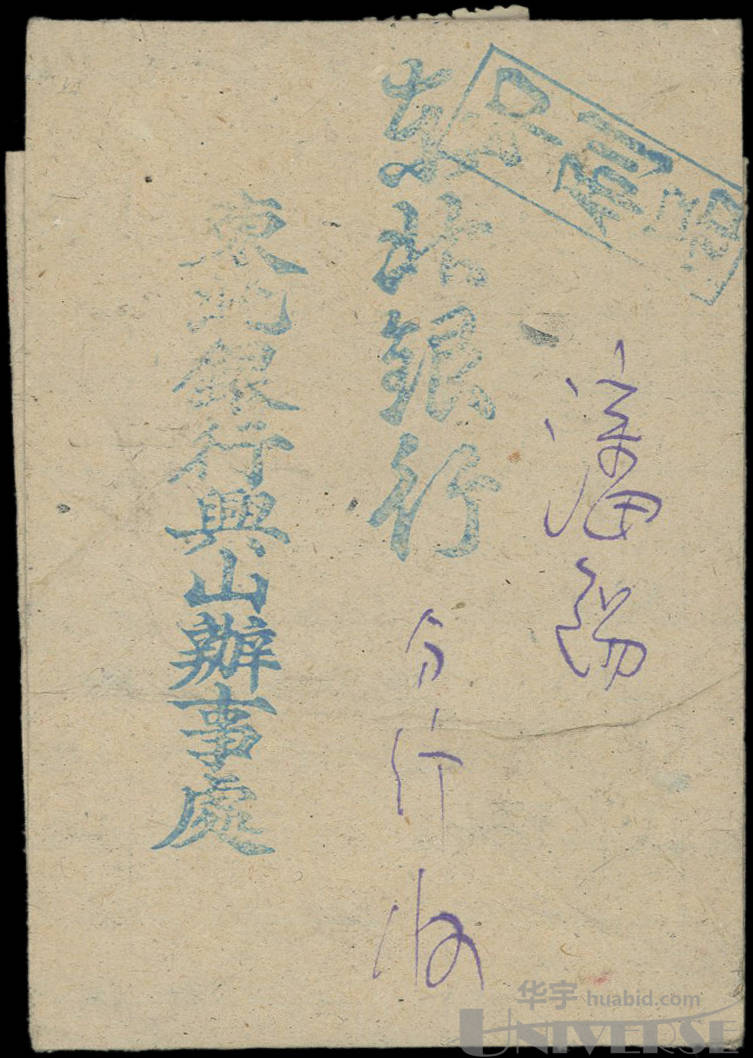 瀋陽
东北銀行分行收
東北銀行興山辦事處
华宇 huabid.com
UNIVERSE